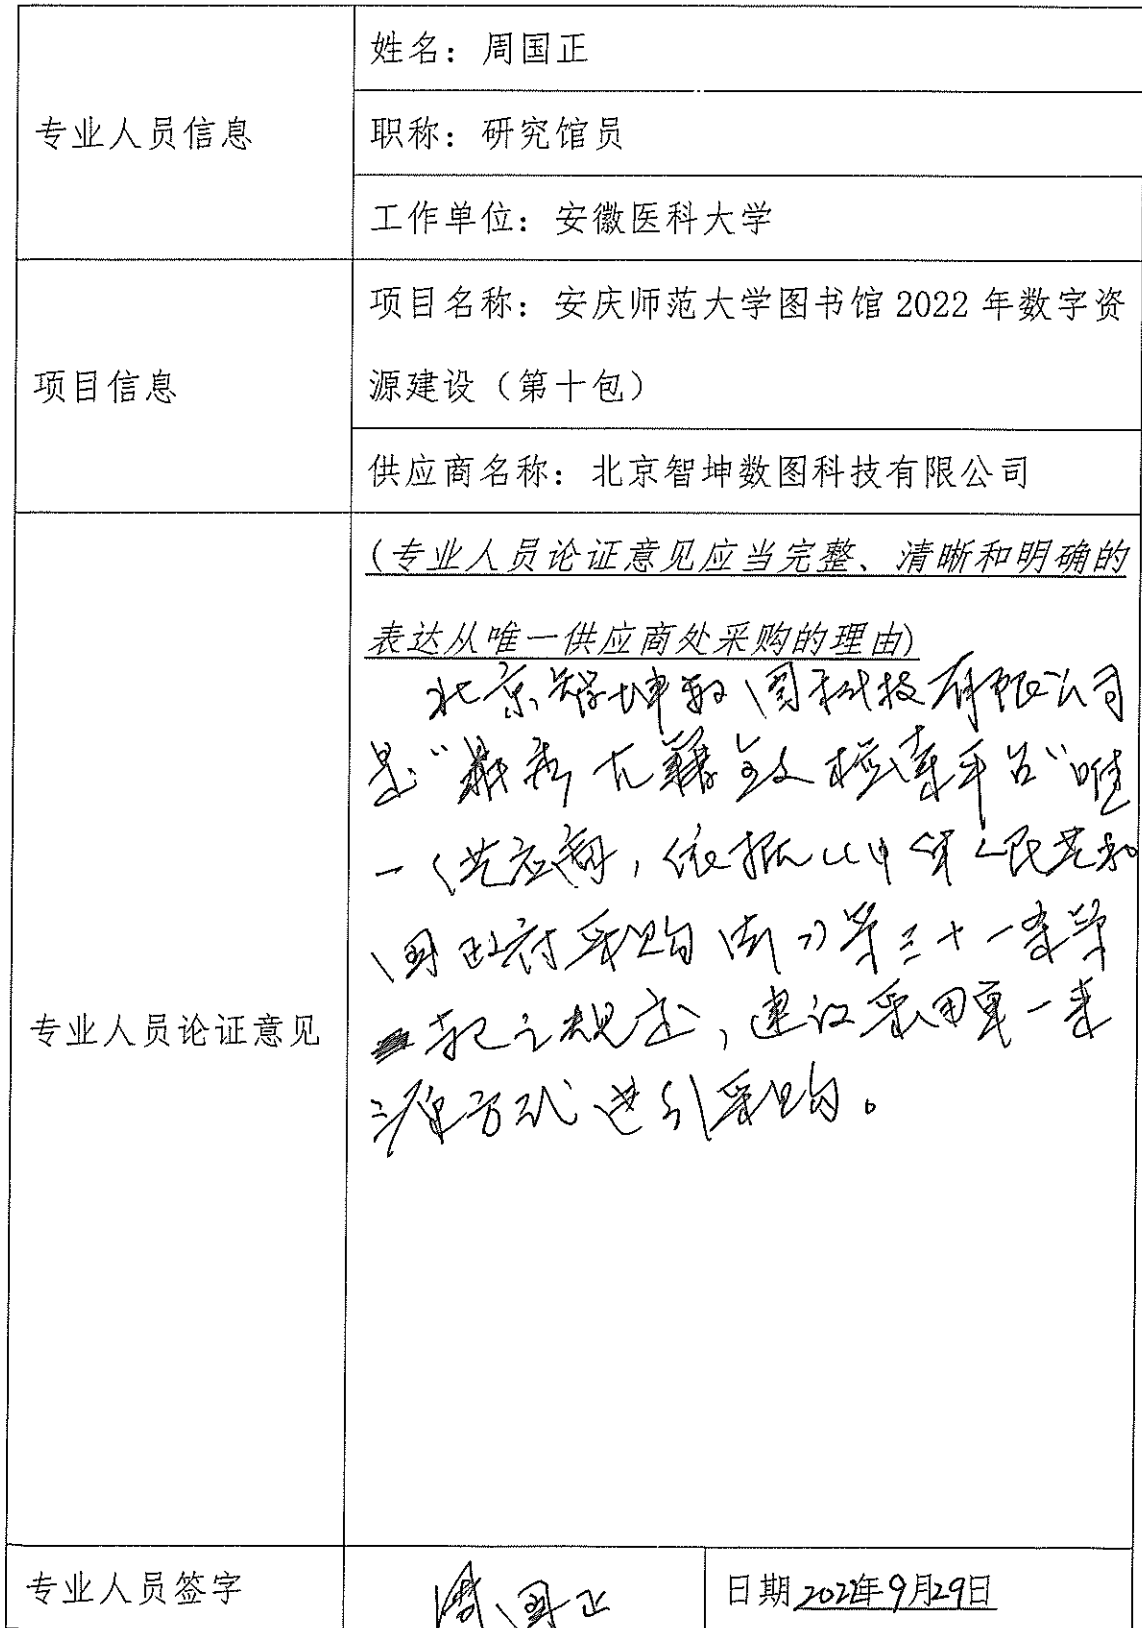 专业人员信息
姓名：周国正
职称：研究馆员
工作单位：安徽医科大学
项目信息
项目名称：安庆师范大学图书馆 2022 年数字资
源建设（第十包）
供应商名称：北京智坤数图科技有限公司
专业人员论证意见
(专业人员论证意见应当完整、清晰和明确的
表达从唯一供应商处采购的理由)
北京智坤数图科技有限公司
是“鼎秀古籍全文检索平台”唯
一供应商，依据《中华人民共和
国政府采购法》第三十一条第
一款之规定，建议采用单一来
源方式进行采购。
专业人员签字
周国正
日期 2022年9月29日